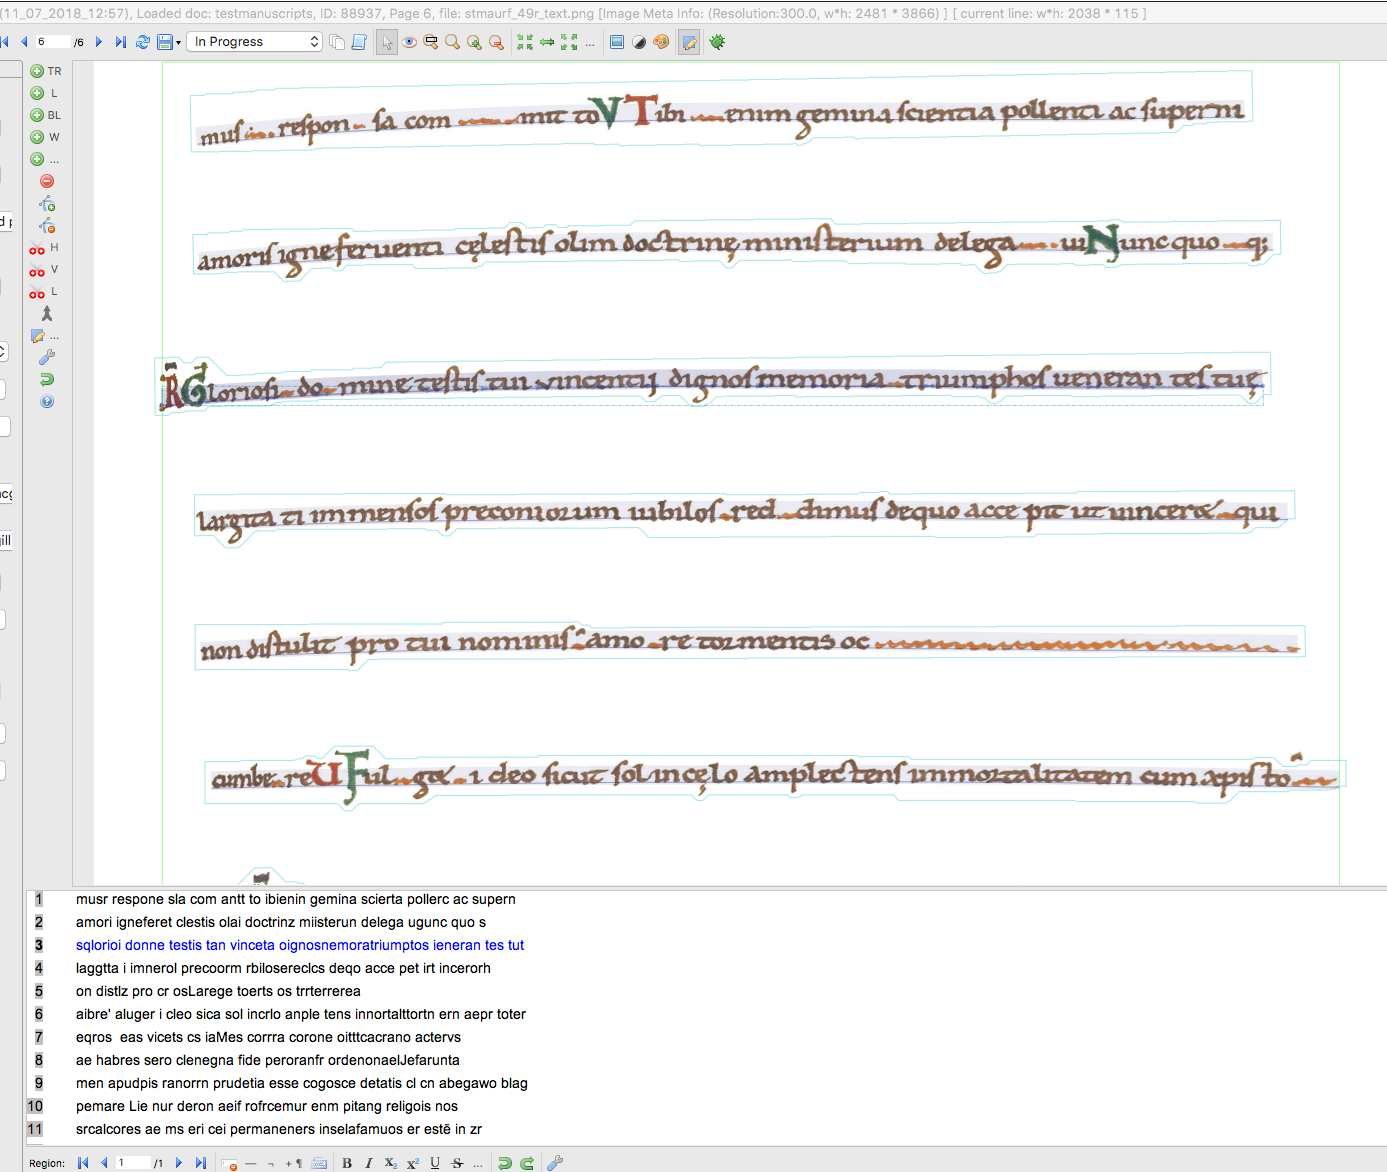 (11_07_2018_12:57), Loaded doc: testmanuscripts, ID: 88937, Page 6, file: stmaurf_49r_text.png [Image Meta Info: (Resolution:300.0, w*h: 2481 * 3866) ] [ current line: w*h: 2038 * 115 ]
6 /6 In Progress ...
TR
L
BL
W
...
H
V
L
...
muſ reſpon ſa com mit to V Tibi enim gemina ſcientia pollenti ac ſuperni
amoriſ igne feruenti cęleſtiſ olim doctrinę miniſterium delega ui Nunc quo q;
R̃ Glorioſi do mine teſtiſ tui vincentij dignoſ memoria triumphoſ ueneran teſ tuę
largita ti immenſoſ preconiorum iubiloſ red dimuſ de quo acce pit ut uinceret qui
non diſtulit pro tui nominiſ amo re tormentis oc
cumbe re U Ful get i deo ſicut ſol in cęlo amplec tenſ immortalitatem cum xpiſto
1 musr respone sla com antt to ibienin gemina scierta pollerc ac supern
2 amori igneferet clestis olai doctrinz miisterun delega ugunc quo s
3 sqlorioi donne testis tan vinceta oignosnemoratriumptos ieneran tes tut
4 laggtta i imnerol precoorm rbilosereclcs deqo acce pet irt incerorh
5 on distlz pro cr osLarege toerts os trrterrerea
6 aibre' aluger i cleo sica sol incrlo anple tens innortalttortn ern aepr toter
7 eqros eas vicets cs iaMes corrra corone oitttcacrano actervs
8 ae habres sero clenegna fide peroranfr ordenonaelJefarunta
9 men apudpis ranorrn prudetia esse cogosce detatis cl cn abegawo blag
10 pemare Lie nur deron aeif rofrcemur enm pitang religois nos
11 srcalcores ae ms eri cei permaneners inselafamuos er estē in zr
Region: 1 /1 B I X₂ X² U S ...